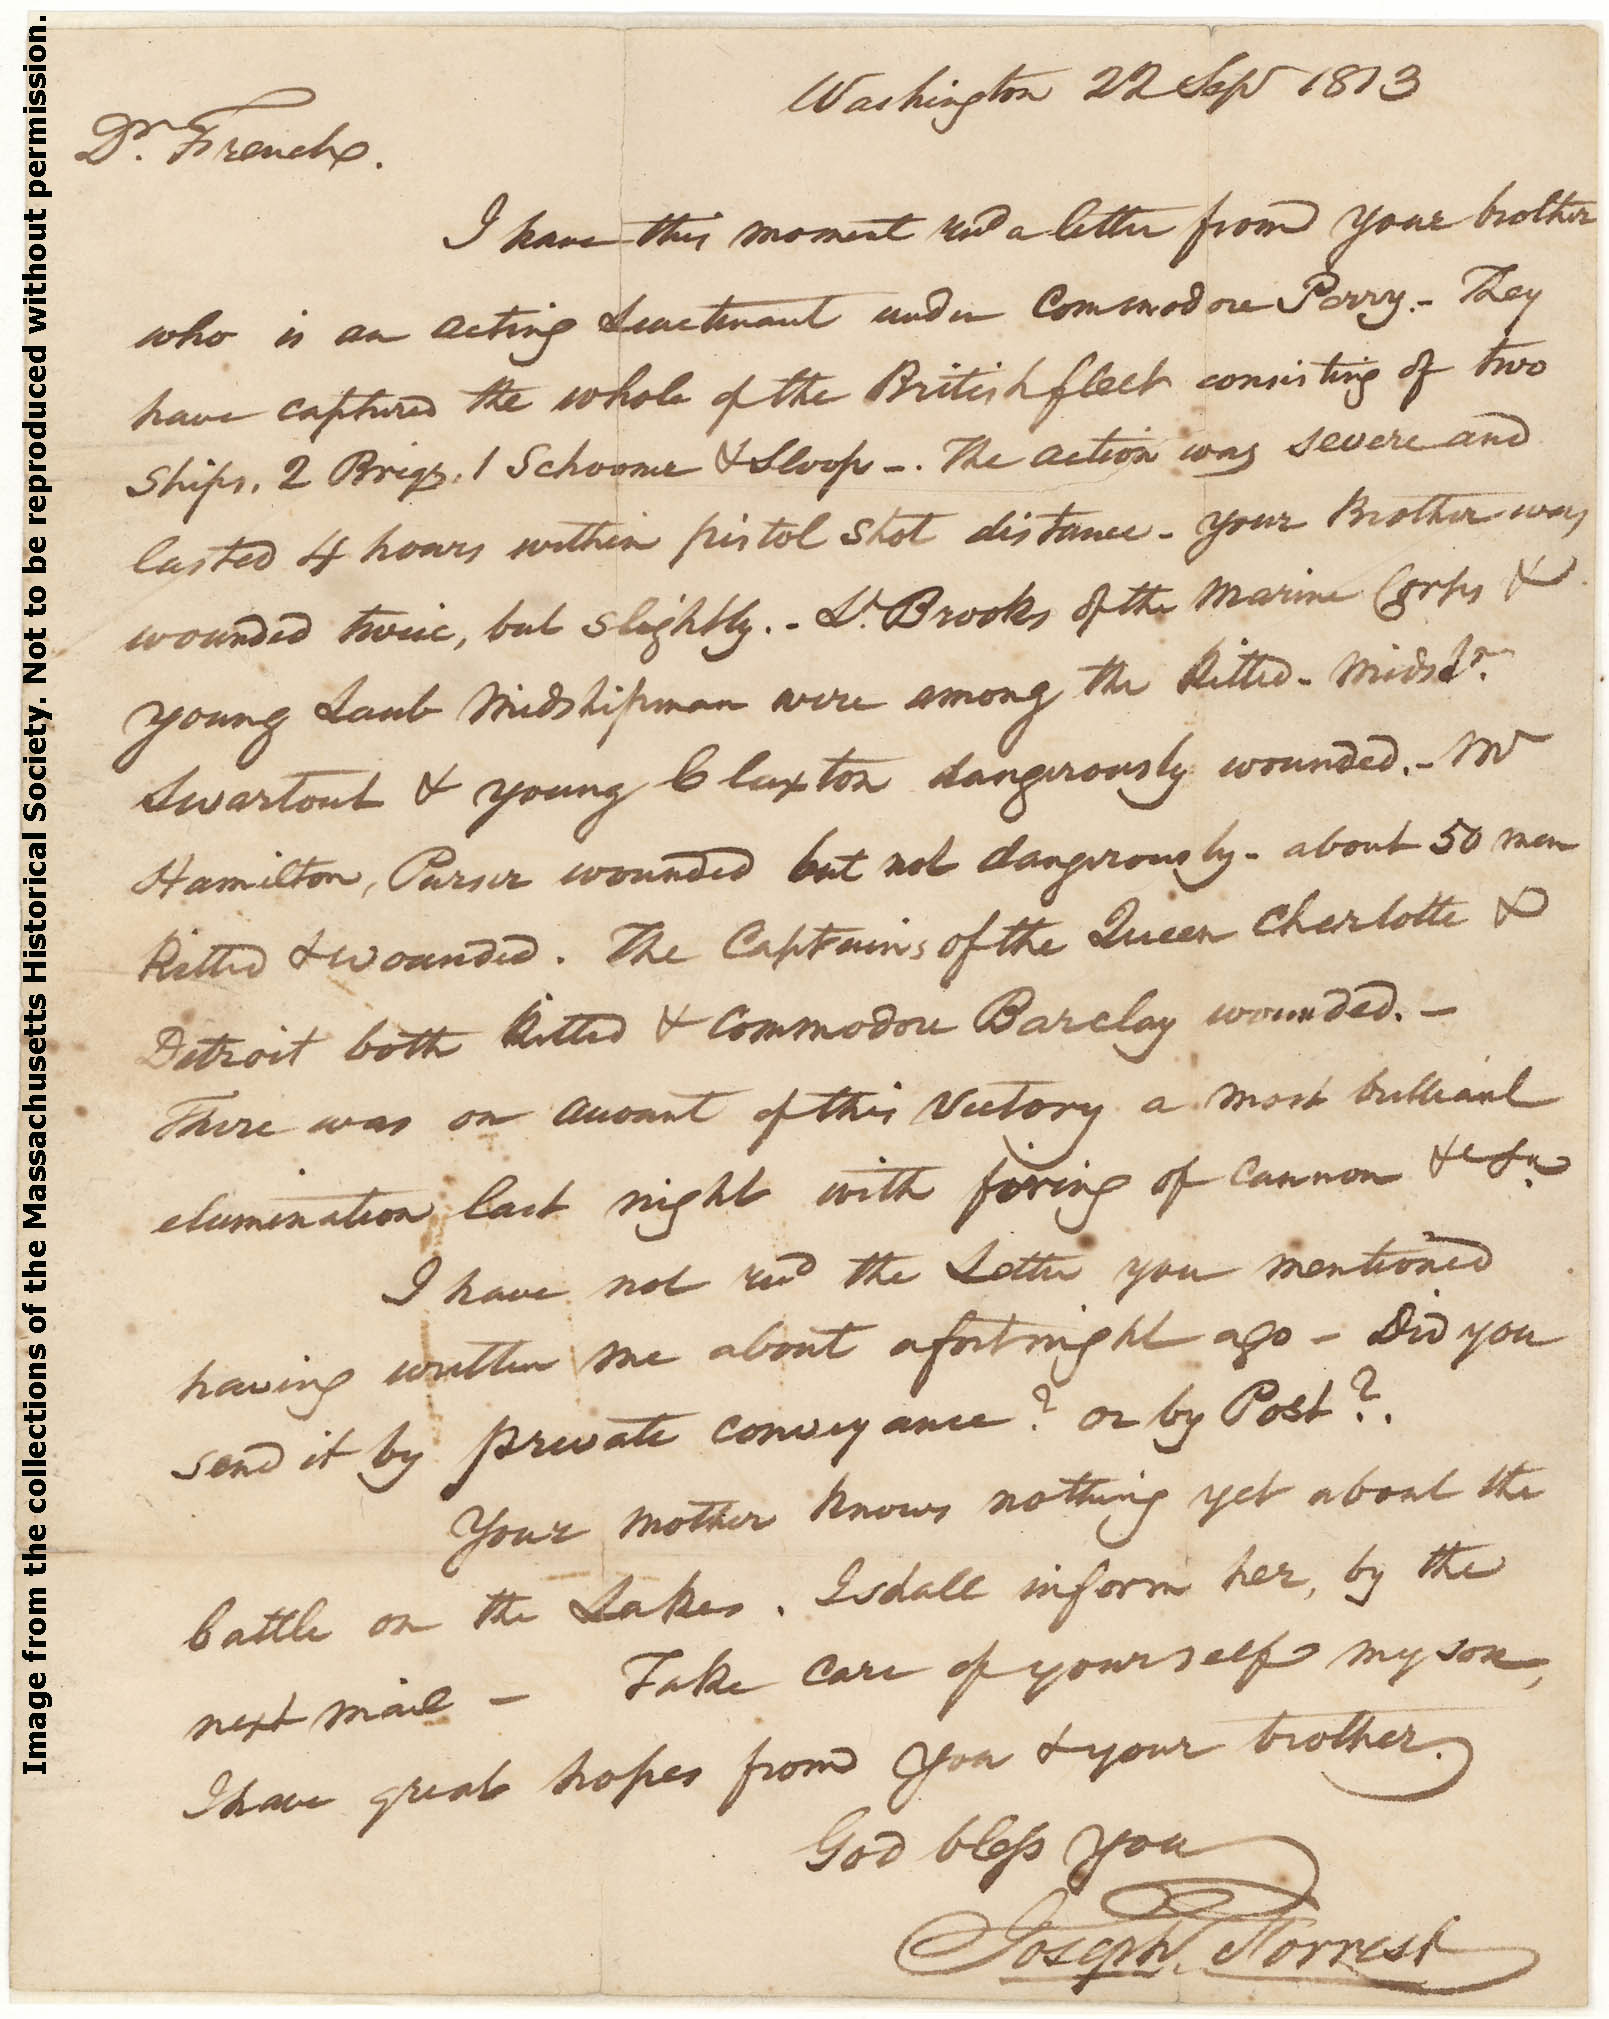 Washington 22 Sep 1813
Dr. French.
I have this moment recd a letter from your brother
who is an acting Lieutenant under Commodore Perry. - They
have captured the whole of the British fleet consisting of two
Ships. 2 Brigs. 1 Schooner & Sloop -. The action was severe and
lasted 4 hours within pistol shot distance - your Brother was
wounded twice, but slightly. - Lt. Brooks of the Marine Corps &
young Laub Midshipman were among the killed - Midsn.
Swartout & young Claxton dangerously wounded. - Mr
Hamilton, Purser wounded but not dangerously - about 50 men
killed & wounded. The Captains of the Queen Charlotte &
Detroit both killed & Commodore Barclay wounded. -
There was on account of this Victory a most brilliant
elumination last night with firing of cannon &c &c.
I have not recd the Letter you mentioned
having written me about a fortnight ago - Did you
send it by private conveyance? or by Post?.
Your mother knows nothing yet about the
battle on the Lakes. I shall inform her, by the
next mail - Take care of yourself my son,
I have great hopes from you & your brother.
God bless you
Joseph Forrest
Image from the collections of the Massachusetts Historical Society. Not to be reproduced without permission.